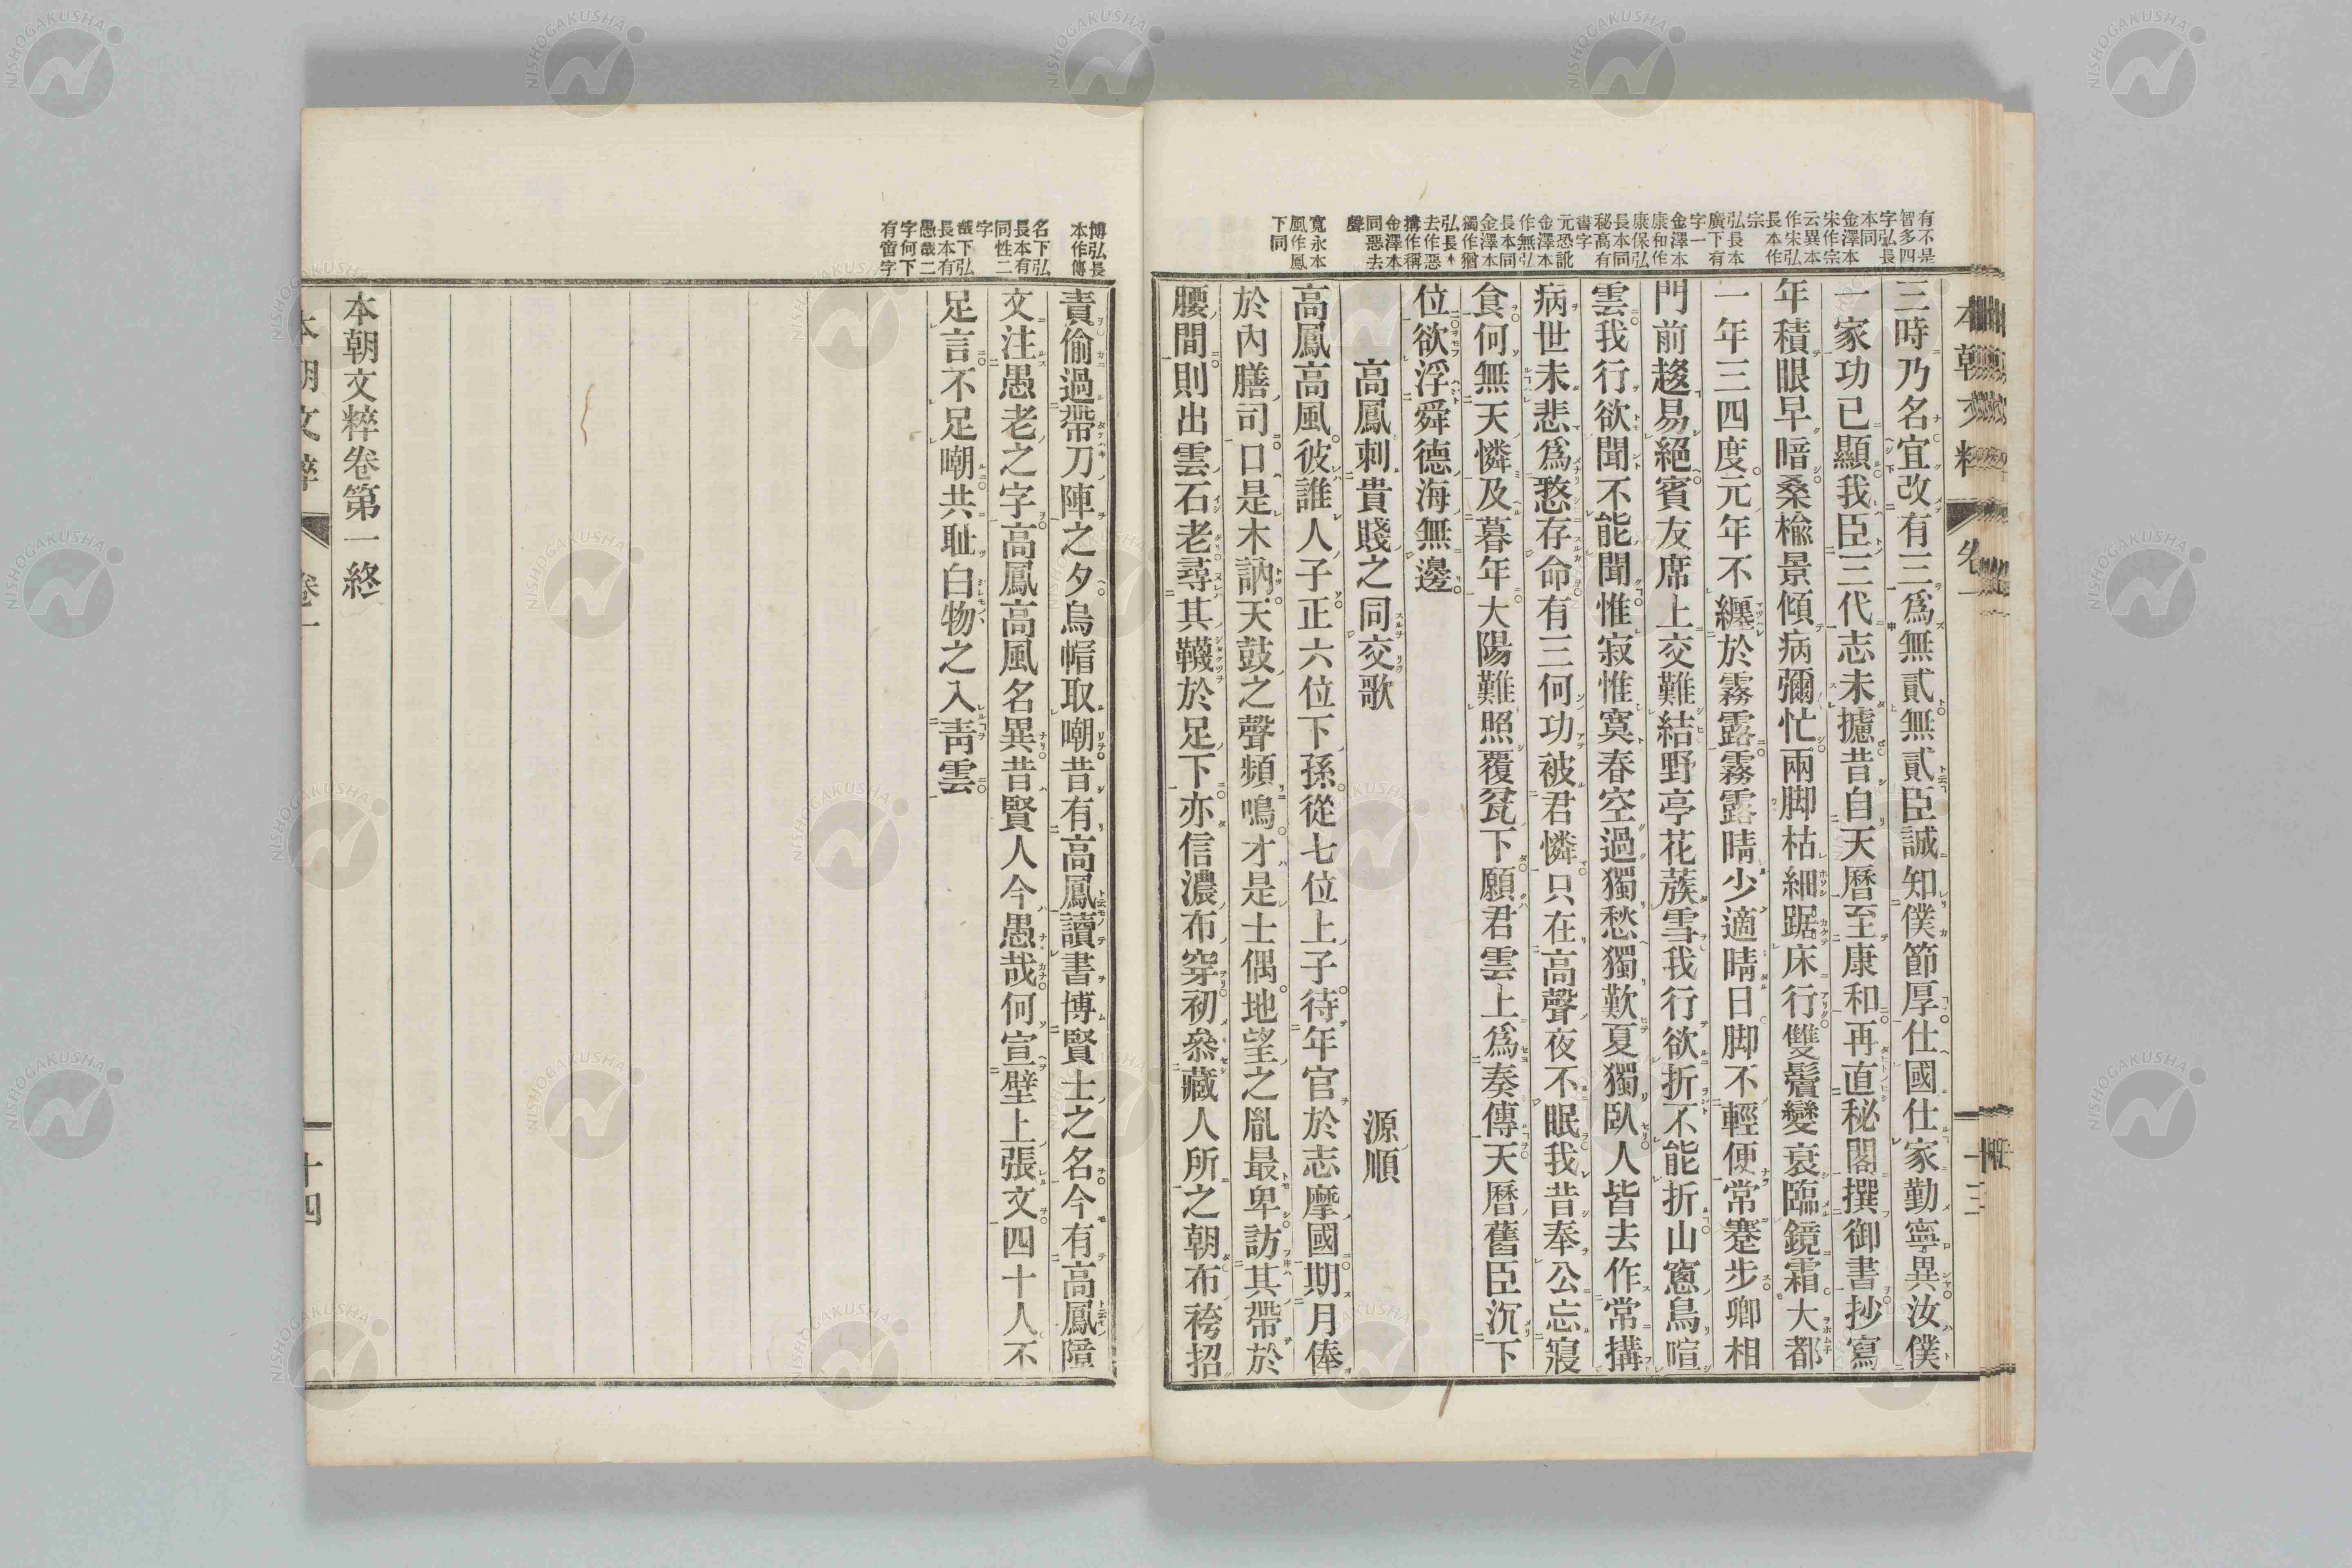 有不是
智多四
字弘長
本同
金澤本
宋作宗
云異本
作宋弘
長本作
宗
弘長本
廣下有
字一
金澤本
康和作
康保弘
長本同
秘高有
書字
元恐訛
金澤本
作無弘
長本同
金澤本
獨作猶
弘長本
去作惡
搆作稱
金澤本
同惡去
聲
寬永本
風作鳳
下同
三時乃名宜改有三爲無貳無貳臣誠知僕節厚仕國仕家勤寧異汝僕
一家功已顯我臣三代志未攄昔自天曆至康和再直秘閣撰御書抄寫
年積眼早暗桑楡景傾病彌忙兩脚枯細踞床行雙鬢變衰臨鏡霜大都
一年三四度元年不纏於霧露霧露晴少適晴日脚不輕便常蹇步卿相
門前趍易絕賓友席上交難結野亭花蔟雪我行欲折不能折山窻鳥喧
雲我行欲聞不能聞惟寂惟寞春空過獨愁獨歎夏獨臥人皆去作常搆
病世未悲爲愁存命有三何功被君憐只在高聲夜不眠我昔奉公忘寢
食何無天憐及暮年大陽難照覆瓮下願君雲上爲奏傳天曆舊臣沉下
位欲浮舜德海無邊
高鳳刺貴賤之同交歌
源順
高鳳高風彼誰人子正六位下孫從七位上子待年官於志摩國期月俸
於內膳司口是木訥天鼓之聲頻鳴才是士偶地望之胤最卑訪其帶於
腰間則出雲石老尋其韈於足下亦信濃布穿初叅藏人所之朝布袴招
本朝文粹
卷一
十三
博弘長
本作傳
名下弘
長本有
同性二
字
哉下弘
長本有
愚哉二
字何下
有啻字
責偷過帶刀陣之夕烏帽取嘲昔有高鳳讀書博賢士之名今有高鳳障
文注愚老之字高鳳高風名異昔賢人今愚哉何宣壁上張文四十人不
足言不足嘲共耻白物之入靑雲
本朝文粹卷第一終
本朝文粹
卷一
十四
NISHOGAKUSHA